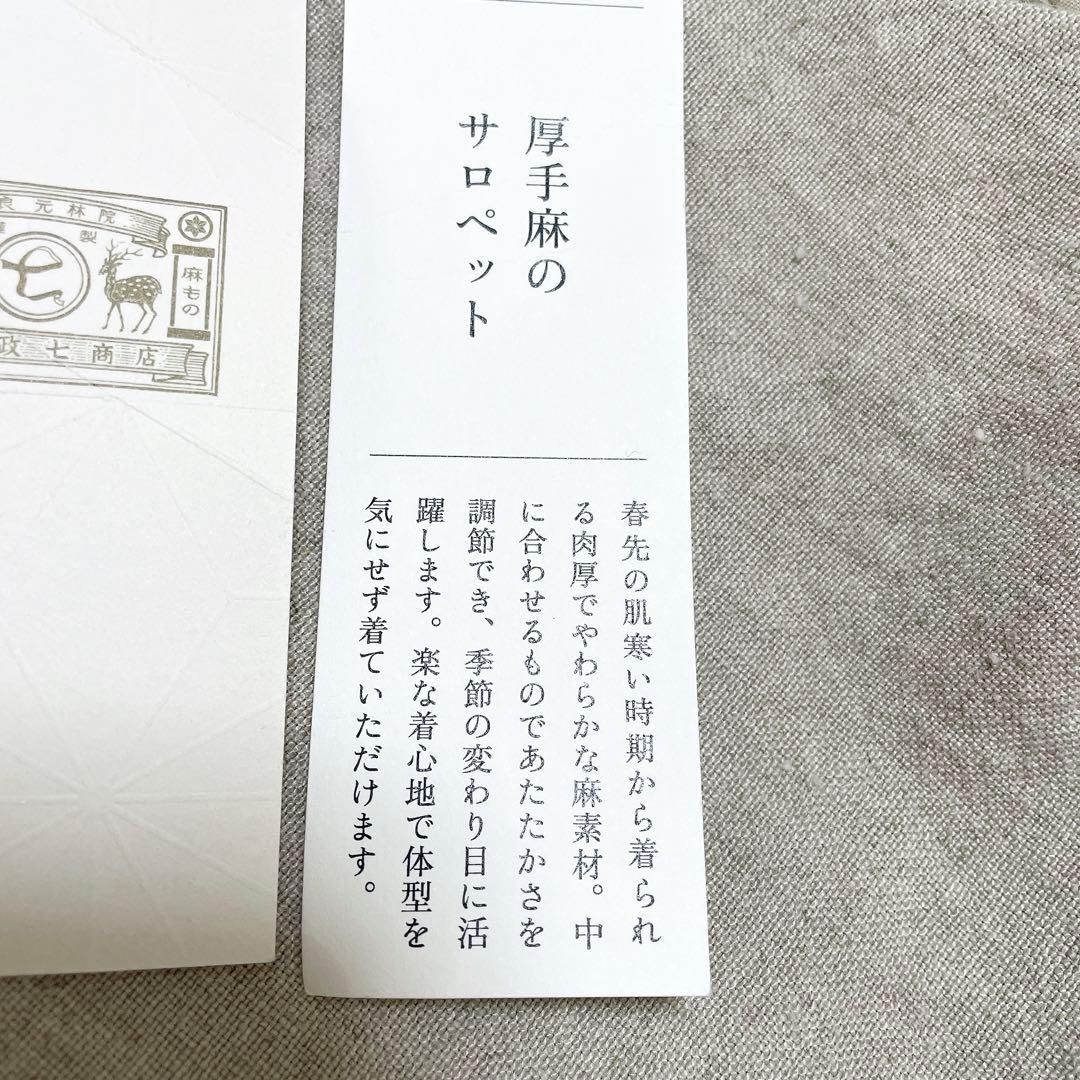 厚手麻の
サロペット
春先の肌寒い時期から着られ
る肉厚でやわらかな麻素材。中
に合わせるものであたたかさを
調節でき、季節の変わり目に活
躍します。楽な着心地で体型を
気にせず着ていただけます。
良元林院
製
七
麻もの
政七商店